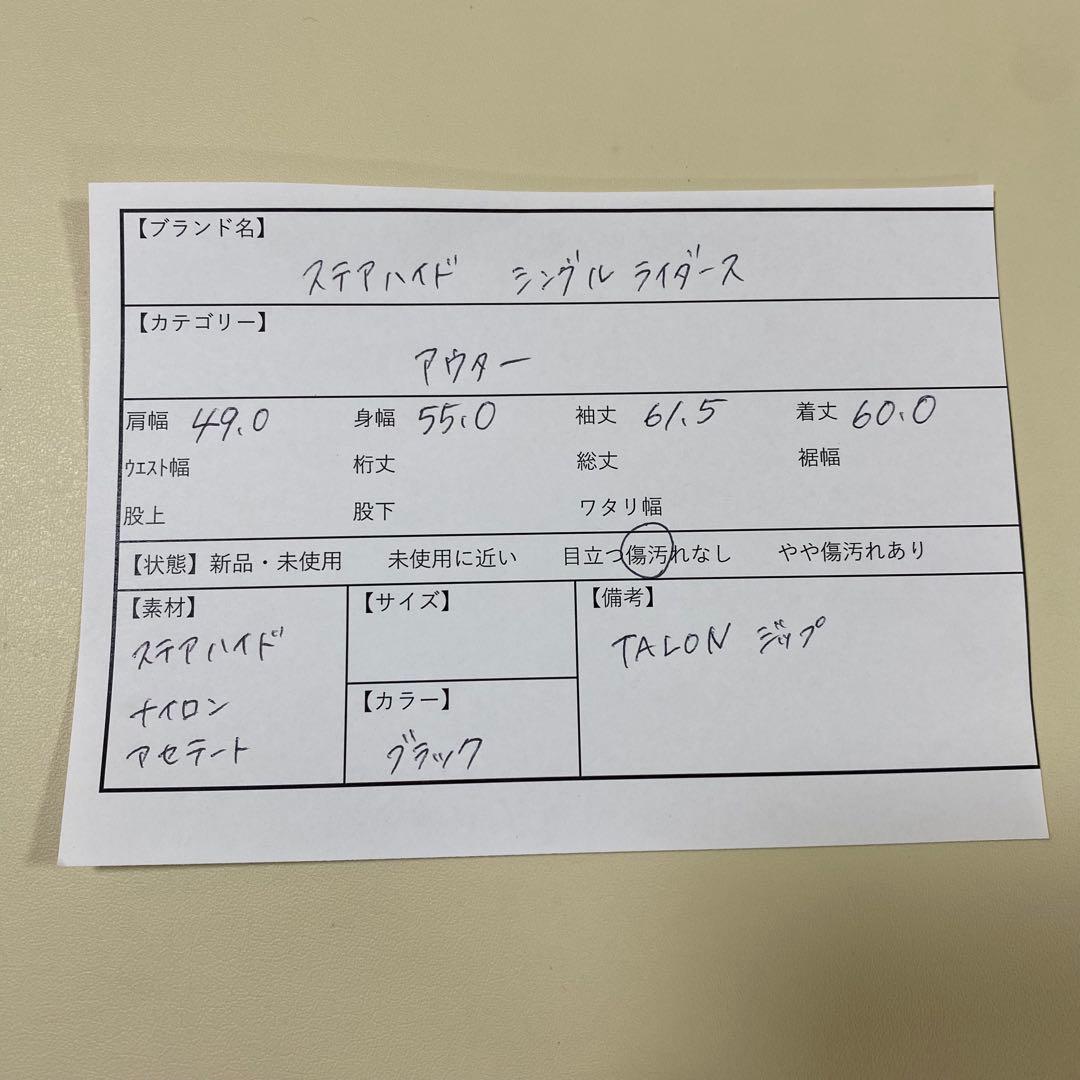 【ブランド名】
ステアハイド シングル ライダース
【カテゴリー】
アウター
肩幅 49.0 身幅 55.0 袖丈 61.5 着丈 60.0
ウエスト幅 裄丈 総丈 裾幅
股上 股下 ワタリ幅
【状態】新品・未使用 未使用に近い 目立つ傷汚れなし やや傷汚れあり
【素材】
ステアハイド
ナイロン
アセテート
【サイズ】
【カラー】
ブラック
【備考】
TALON ジップ